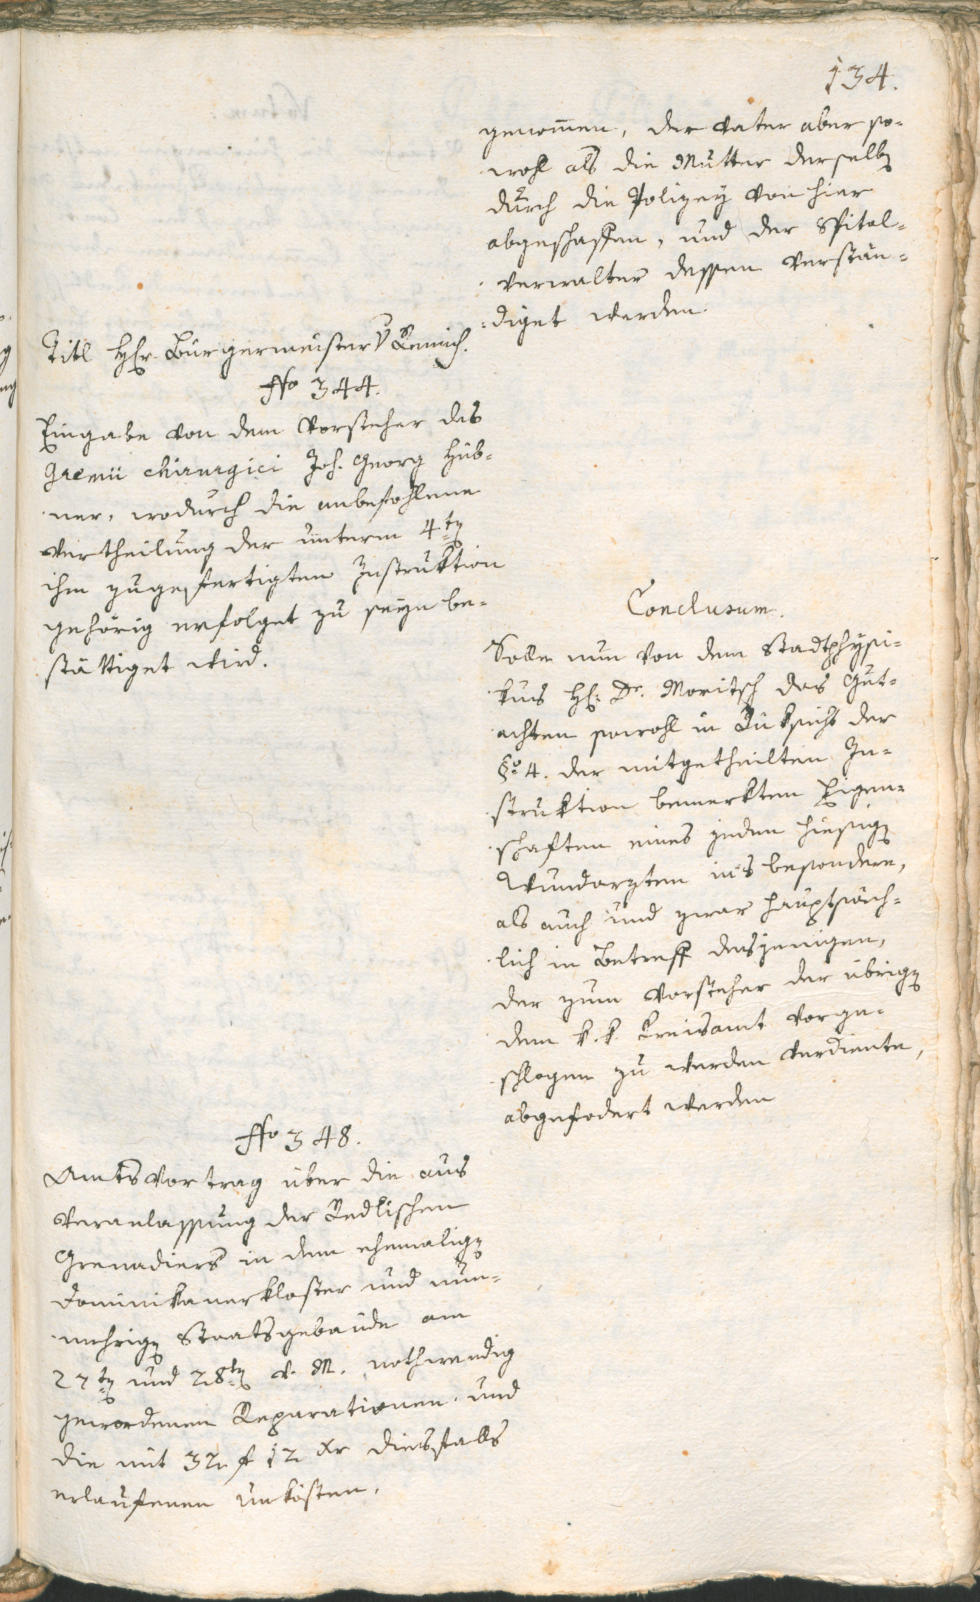 134.
genom̄en, der Vater aber so-
wohl als die Mutter derselbē
durch die Polizey von hier
abgeschaffen, und der Spital-
verwalter dessen verstän-
diget werden.
Titl Hr. Bürgermeister v
No 344.
Eingabe von dem Vorsteher des
Gremii chirurgici Joh. Georg Hüb-
ner, wodurch die anbefohlene
Vertheilung der unterm 4tē
ihm zugefertigten Instruktion
gehörig erfolget zu seyn be-
stättiget wird.
Conclusum.
Solle nun von dem Stadtphysi-
kus H: Dr. Moritsch das Gut-
achten sowohl in Rüksicht der
§o 4. der mitgetheilten In-
struktion bemerkten Eigen-
schaften eines jeden hiesigē
Wundarzten ins besondere,
als auch und zwar hauptsäch-
lich in Betreff desjenigen,
der zum Vorsteher der übrigē
dem k. k. Kreisamt vorge-
schlagen zu werden verdiente,
abgefodert werden
No 348.
Amts Vortrag über die aus
Veranlassung der Redlischen
Grenadiers in dem ehemaligē
Dominikanerkloster und nun-
mehrigē Staatsgebäude am
27tē und 28tē v. M. nothwendig
gewordenen Reparationen und
die mit 32 f 12 xr diesfalls
erlaufenen Unkösten.